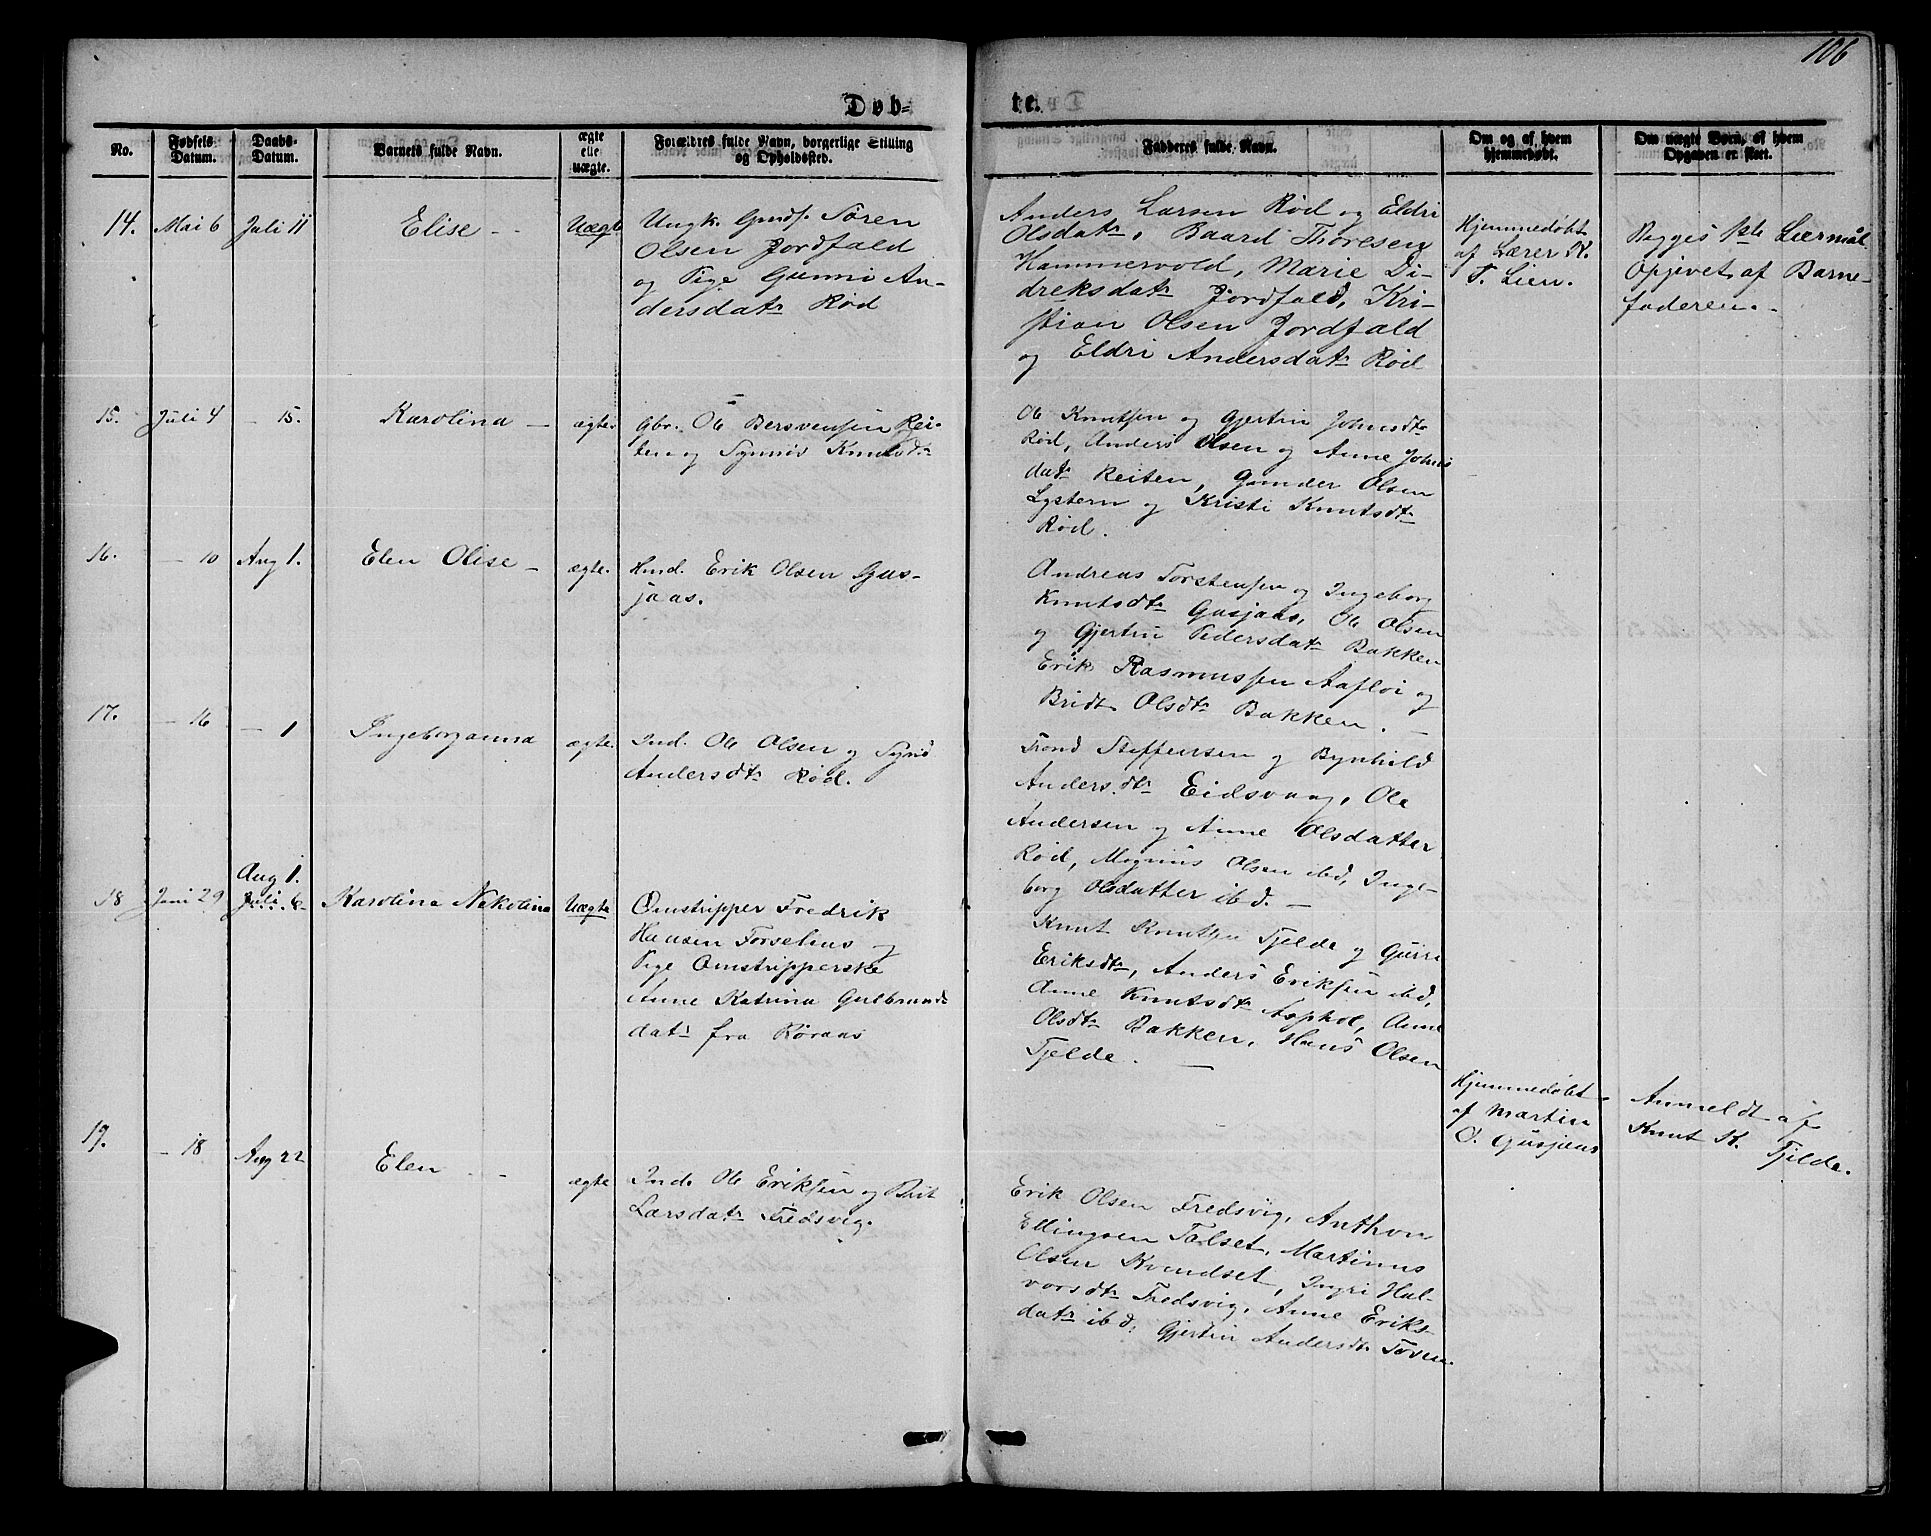 106
Døb=
te.
No.
Fødsels
Datum.
Daabs-
Datum.
Barnets fulde Navn.
ægte
elle
uægte.
Forældres fulde Navn, borgerlige Stilling
og Opholdssted.
Fadderes fulde Navn.
Om og af hvem
hjemmedøbt.
Om uægte Børn, af hvem
Opgaven er skeet.
14.
Mai 6
Juli 11
Elise
Uægt.
Ungk. Gmdf. Søren
Olsen Jordfald
og Pige Gunni An-
dersdatr Rød
Anders Larsen Rød og Eldri
Olsdatr, Baard Thoresen
Hammervold, Marie Di-
dreksdatr Jordfald, Kri-
stian Olsen Jordfald
og Eldri Andersdatr Rød
Hjemmedøbt
af Lærer K.
T. Lien.
Begges 1ste Leiermål.
Opgivet af Barne-
faderen.
15.
Juli 4
— 15.
Karolina —
ægte.
Gbr. Ole Bersvensen Rei-
ten og Synnøv Knutsdtr
Ole Knutsen og Gjertin Johnsdtr
Rød, Anders Olsen og Anne Johns
datr Reiten, Gunder Olsen
Lystern og Kristi Knutsdtr
Rød.
16.
— 10
Aug 1.
Elen Olise —
ægte.
Hmd. Erik Olsen Gus-
jaas.
Andreas Torstensen og Ingeborg
Knutsdtr Gusjaas, Ole Olsen
og Gjertin Pedersdatr Bakken
Erik Rasmussen Aafløi og
Bridt Olsdtr Bakken. —
17.
— 16
— 1
Ingeborganna
ægte.
Ind. Ole Olsen og Synø
Andersdtr Rød.
Trond Steffensen og Bynhild
Andersdtr Eidsvaag, Ole
Andersen og Anne Olsdatter
Rød, Magnus Olsen ibd, Inge-
borg Olsdatter ibd. —
18
Juni 29
Aug 1.
Juli 6
Karolina Nikolina
Uægte
Omstripper Fredrik
Hansen Forselius og
Pige Omstripperske
Anne Katrina Gulbrands
datr fra Røraas
Knut Knutsen Tjelde og Gurri
Eriksdtr, Anders Eriksen ibd,
Anne Knutsdtr Asphol, Anne
Olsdtr Bakken, Hans Olsen
Tjelde. —
Hjemmedøbt
af Martin
O. Gusjaas
Anmeldt af
Knut K. Tjelde.
19.
— 18
Aug 22
Elen
ægte
Ind. Ole Eriksen og Brit
Larsdatr Fredsvig.
Erik Olsen Fredsvig, Anthon
Ellingsen Talset, Martinus
Olsen Kvendset, Ingri Hal-
vorsdtr Fredsvig, Anne Eriks-
datr ibd, Gjertin Andersdtr Toven.